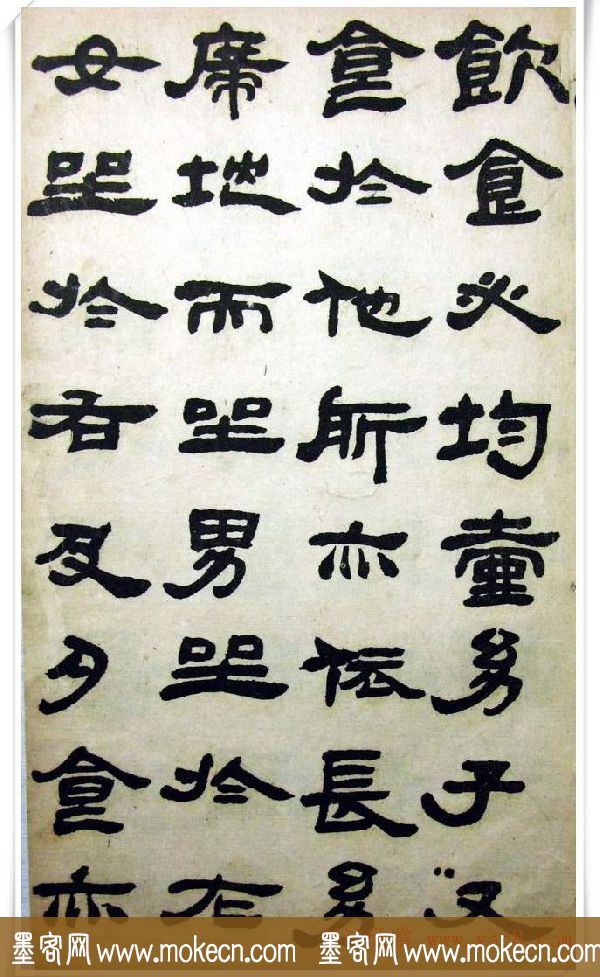 飲食必均壹幼子又
食於他所亦依長幼
席地而坐男坐於左
女坐於右及夕食亦
墨客网 www.mokecn.com 墨客网 www.mokecn.com